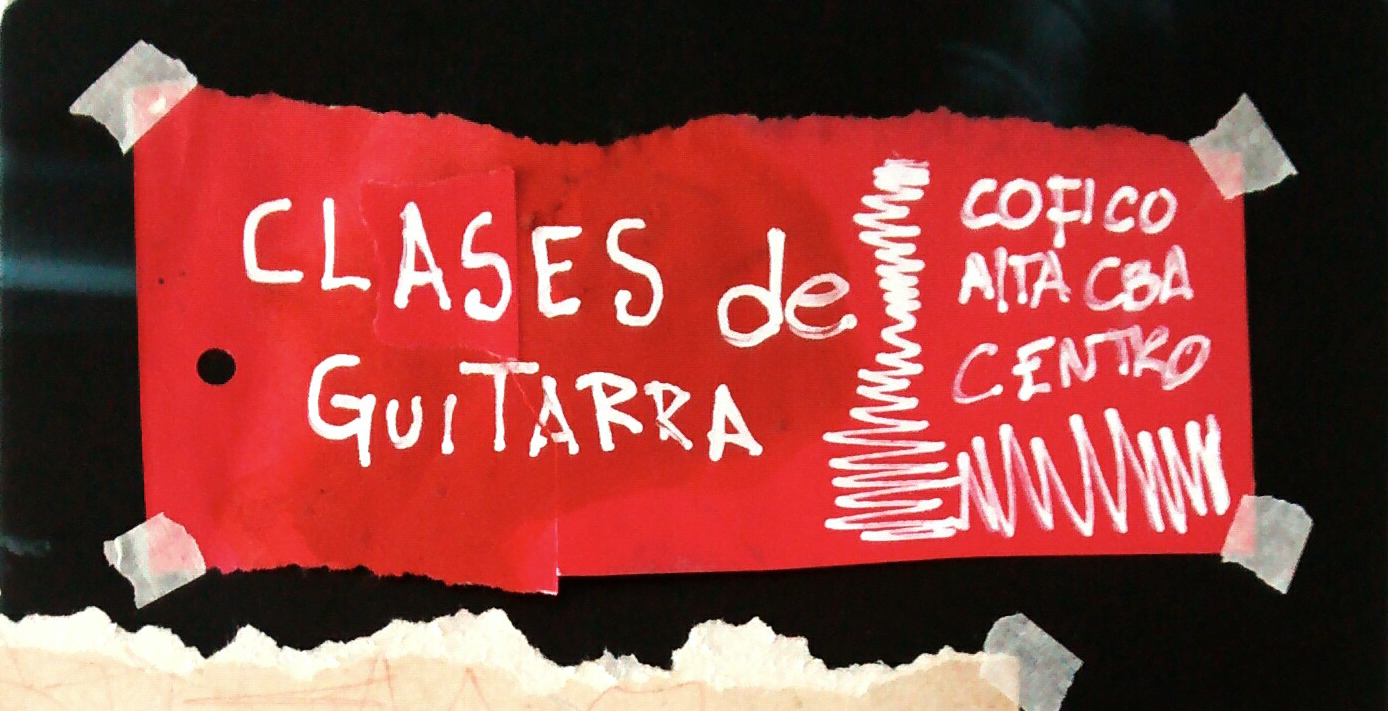 CLASES de
GUITARRA
COFICO
AlTA CBA
CENTRO